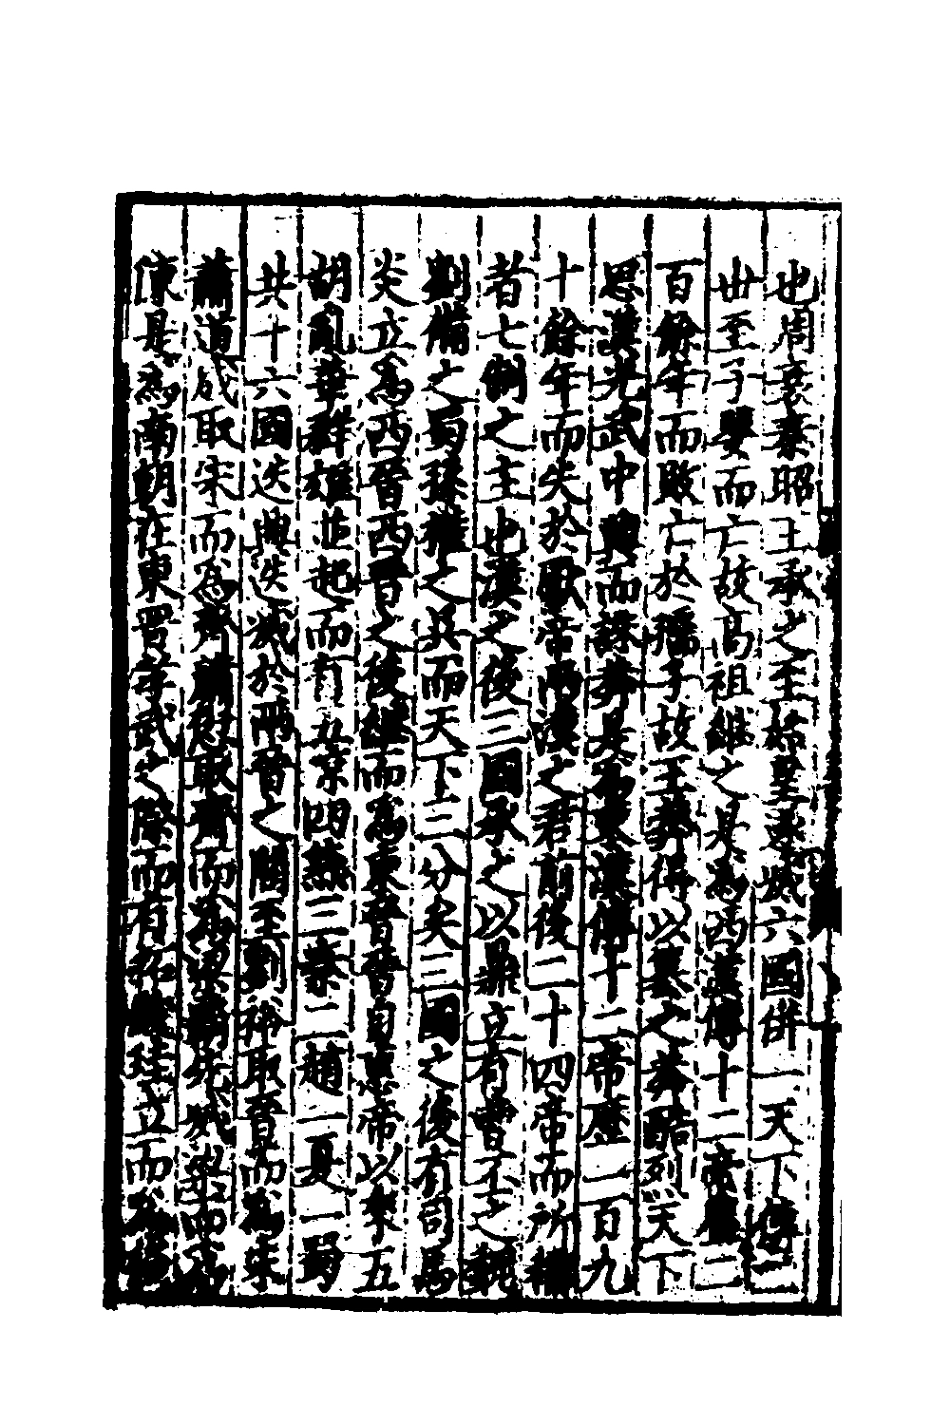 也周衰秦昭王承之至始皇遂滅六國併一天下傳二
世至子嬰而亡故高祖繼之是為西漢傳十二帝歷二
百餘年而敗亡於孺子故王莽得以篡之莽酷列天下
思漢光武中興而誅莽是為東漢傳十二帝歷一百九
十餘年而失於獻帝兩漢之君前後二十四帝而所
者七制之主也漢之後三國承之以鼎立有曹丕之魏
劉備之蜀孫權之吳而天下三分矣三國之後有司馬
炎立為西晉西晉之後繼而為東晉晉自惠帝以來五
胡亂華群雄並起而有五涼四燕三秦二趙一夏一蜀
共十六國迭興迭滅於兩晉之間至劉裕取晉而為宋
蕭道成取宋而為齊蕭衍取齊而為梁 滅梁而為
陳是為南朝在東晉孝武之際而有拓 珪立而為